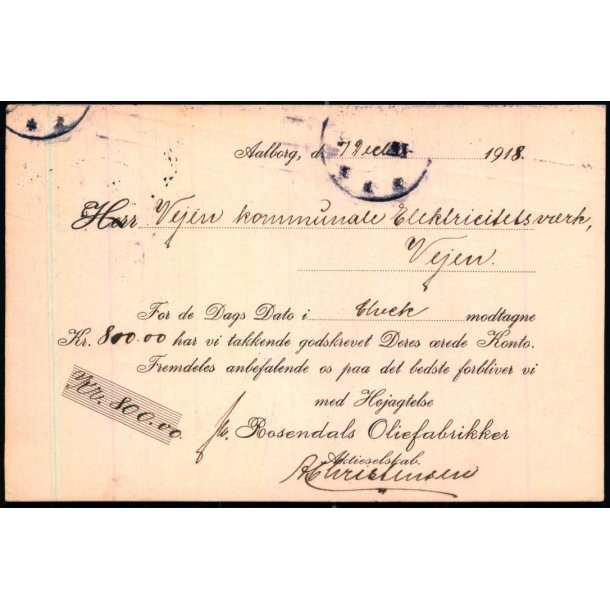 Aalborg, d. 7 Dec 1918.
Herr Vejen kommunale Elektricitetsværk,
Vejen.
For de Dags Dato i Check modtagne
Kr. 800.00 har vi takkende godskrevet Deres ærede Konto.
Fremdeles anbefalende os paa det bedste forbliver vi
med Højagtelse
Kr. 800.00
Rosendals Oliefabrikker
Aktieselskab.
Christensen